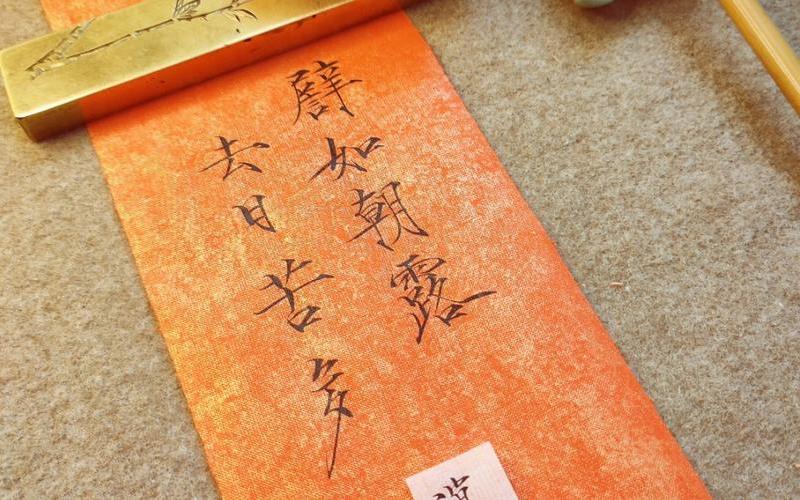 譬如朝露
去日苦多